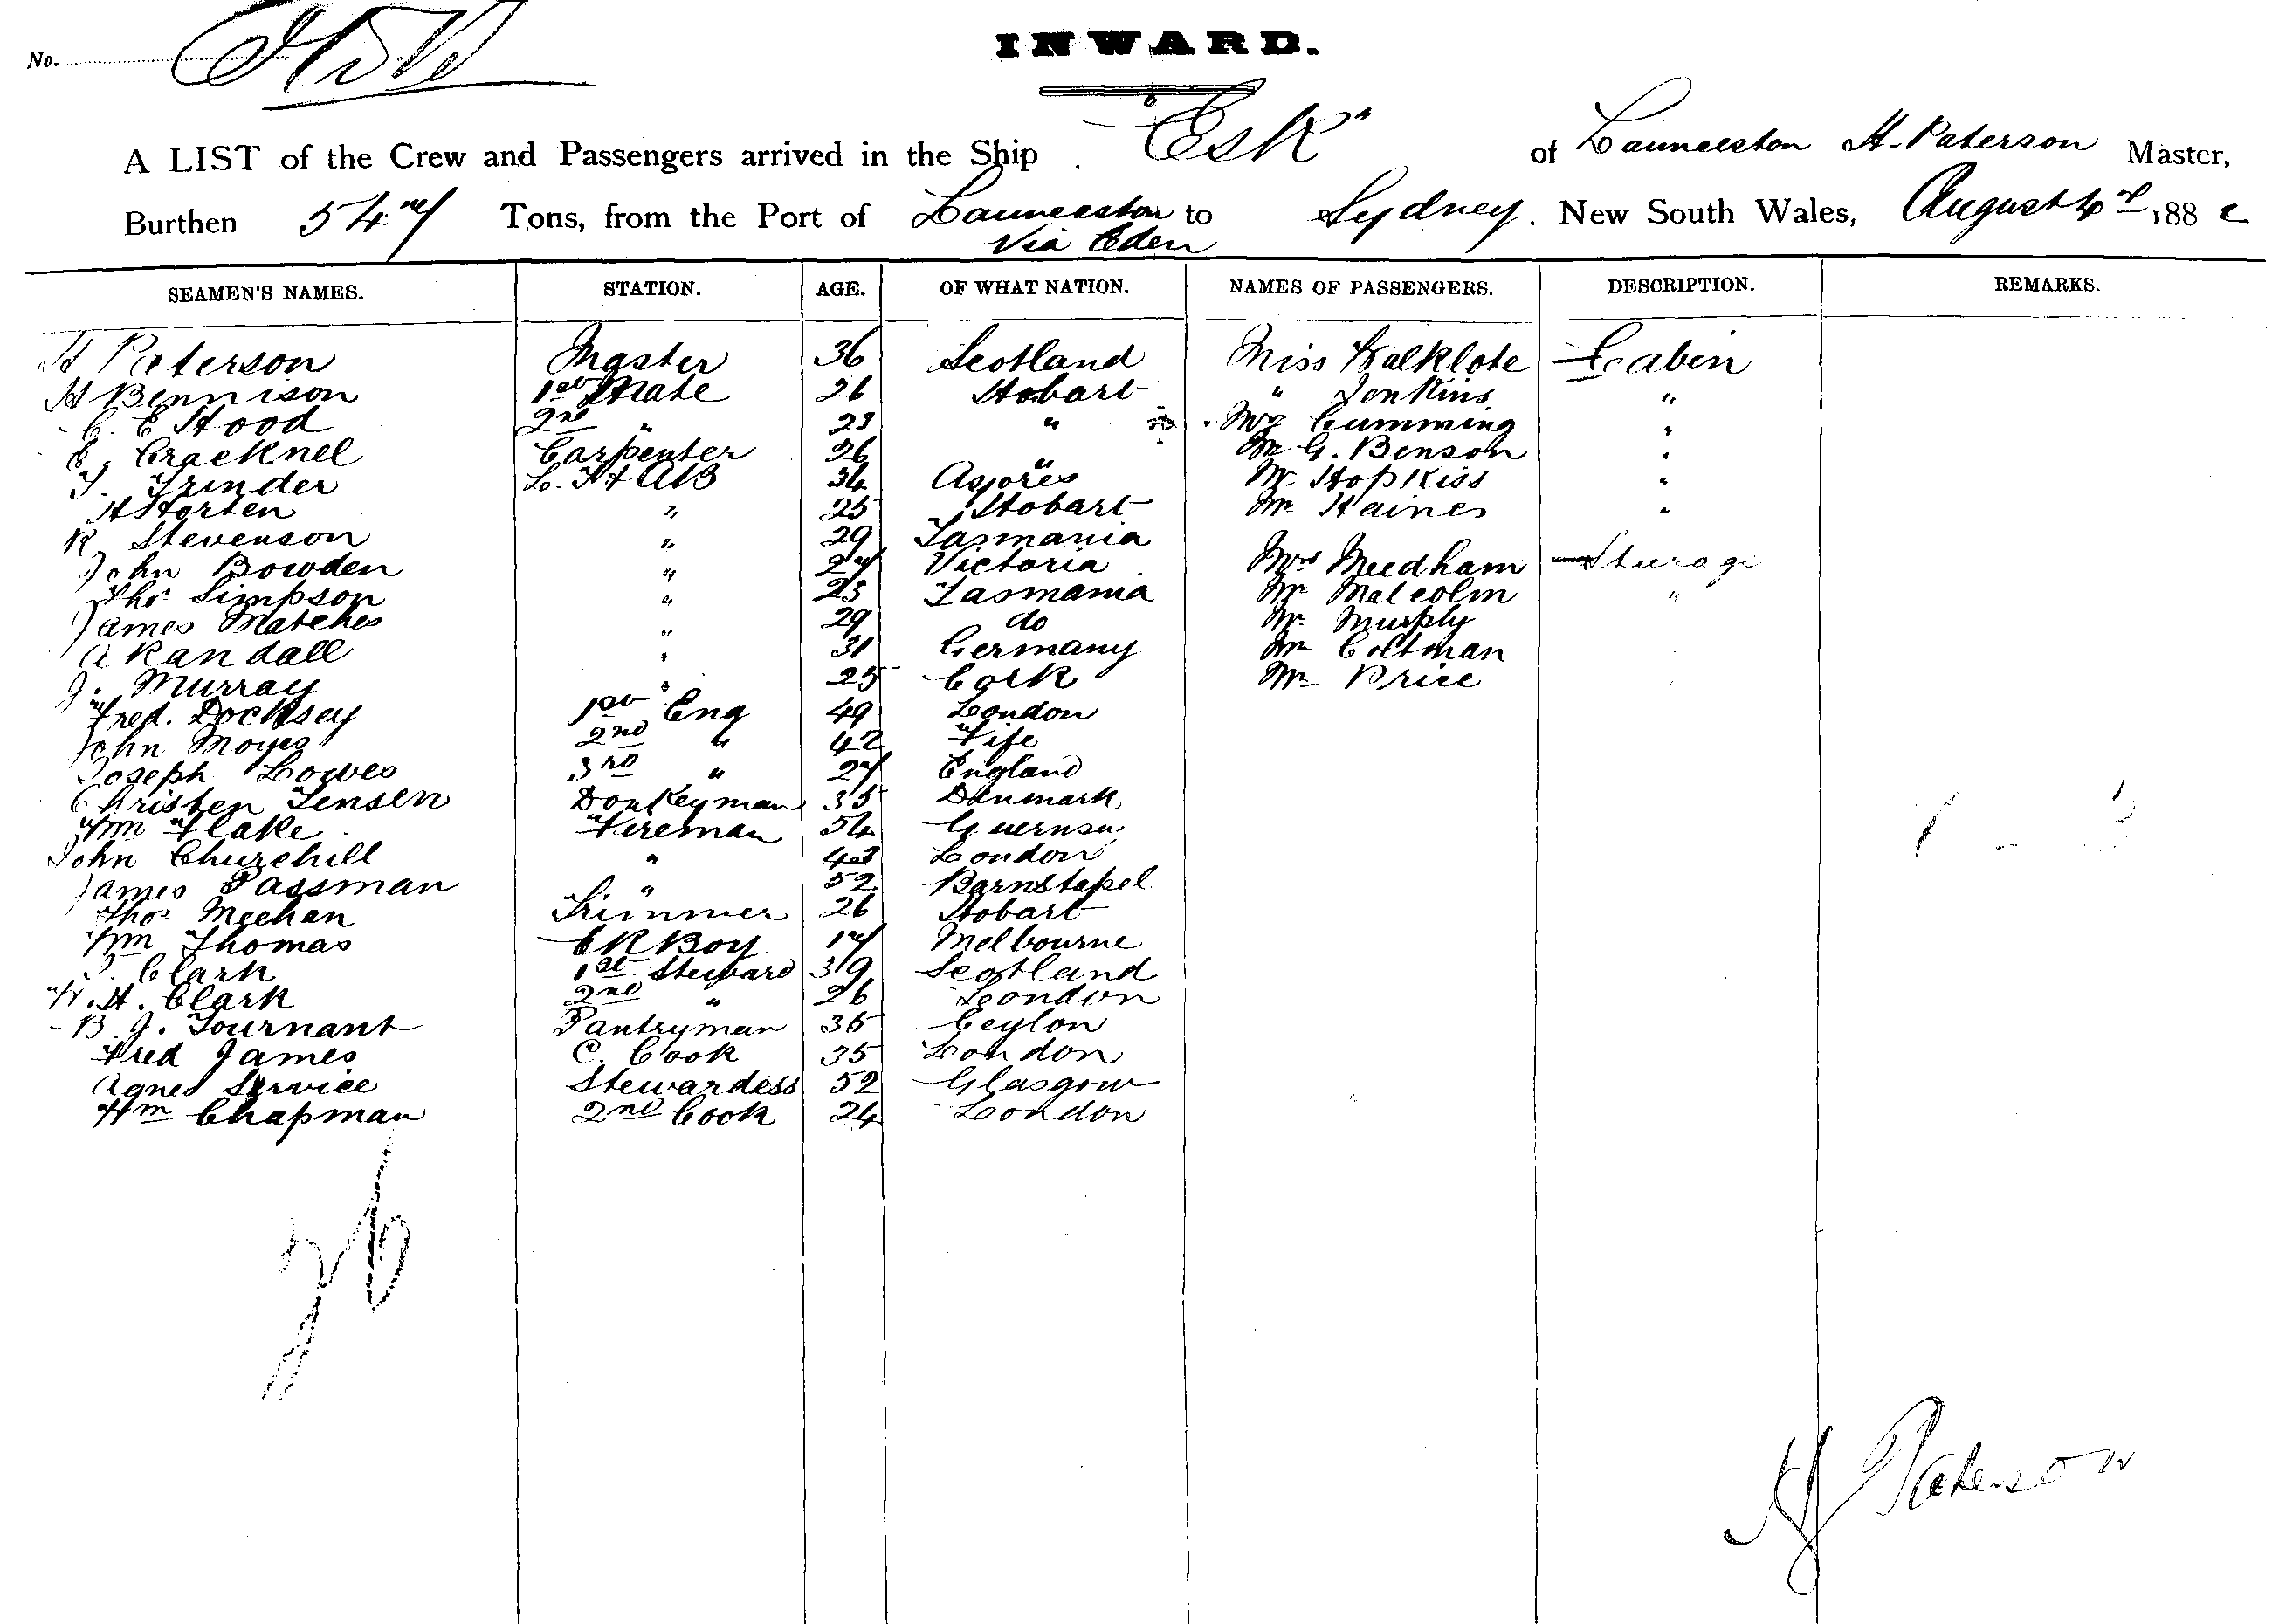 No.
INWARD.
A LIST of the Crew and Passengers arrived in the Ship "Esk" of Launceston H. Paterson Master,
Burthen 547 Tons, from the Port of Launceston to Sydney. New South Wales, August 188
Via Eden
SEAMEN'S NAMES. STATION. AGE. OF WHAT NATION. NAMES OF PASSENGERS. DESCRIPTION. REMARKS.
H Paterson Master 36 Scotland Miss Kalklote Cabin
H Bennison 1st Mate 26 Hobart " Jenkins "
C. E Hood 2nd " 23 " Cumming "
E. Cracknel Carpenter 26 " Mr G. Benson "
T. Trinder AB 34 Asores Mr Hopkiss "
H Horten " 25 Hobart Mr Haines "
R. Stevenson " 29 Tasmania
John Bowden " 27 Victoria Mrs Meedham Sturage
Thos Simpson " 23 Tasmania Mr Malcolm "
James Matches " 29 do Mr Murphy
A Randall " 31 Germany Mr Coltman
J. Murray " 25 Cork Mr Price
Fred. Docksey 1st Eng 49 London
John Moyes 2nd " 42 Fife
Joseph Lowes 3rd " 27 England
Christen Jensen Donkeyman 35 Denmark
Wm Flake Fireman 54 Guernsey
John Churchill " 43 London
James Passman " 52 Barnstapel
Thos Meehan Trimmer 26 Hobart
Wm Thomas ER Boy 17 Melbourne
Clark 1st Steward 39 Scotland
W. H. Clark 2nd " 26 London
B. J. Tournant Pantryman 35 Ceylon
Fred James C. Cook 35 London
Agnes Service Stewardess 52 Glasgow
Wm Chapman 2nd Cook 24 London
H Paterson